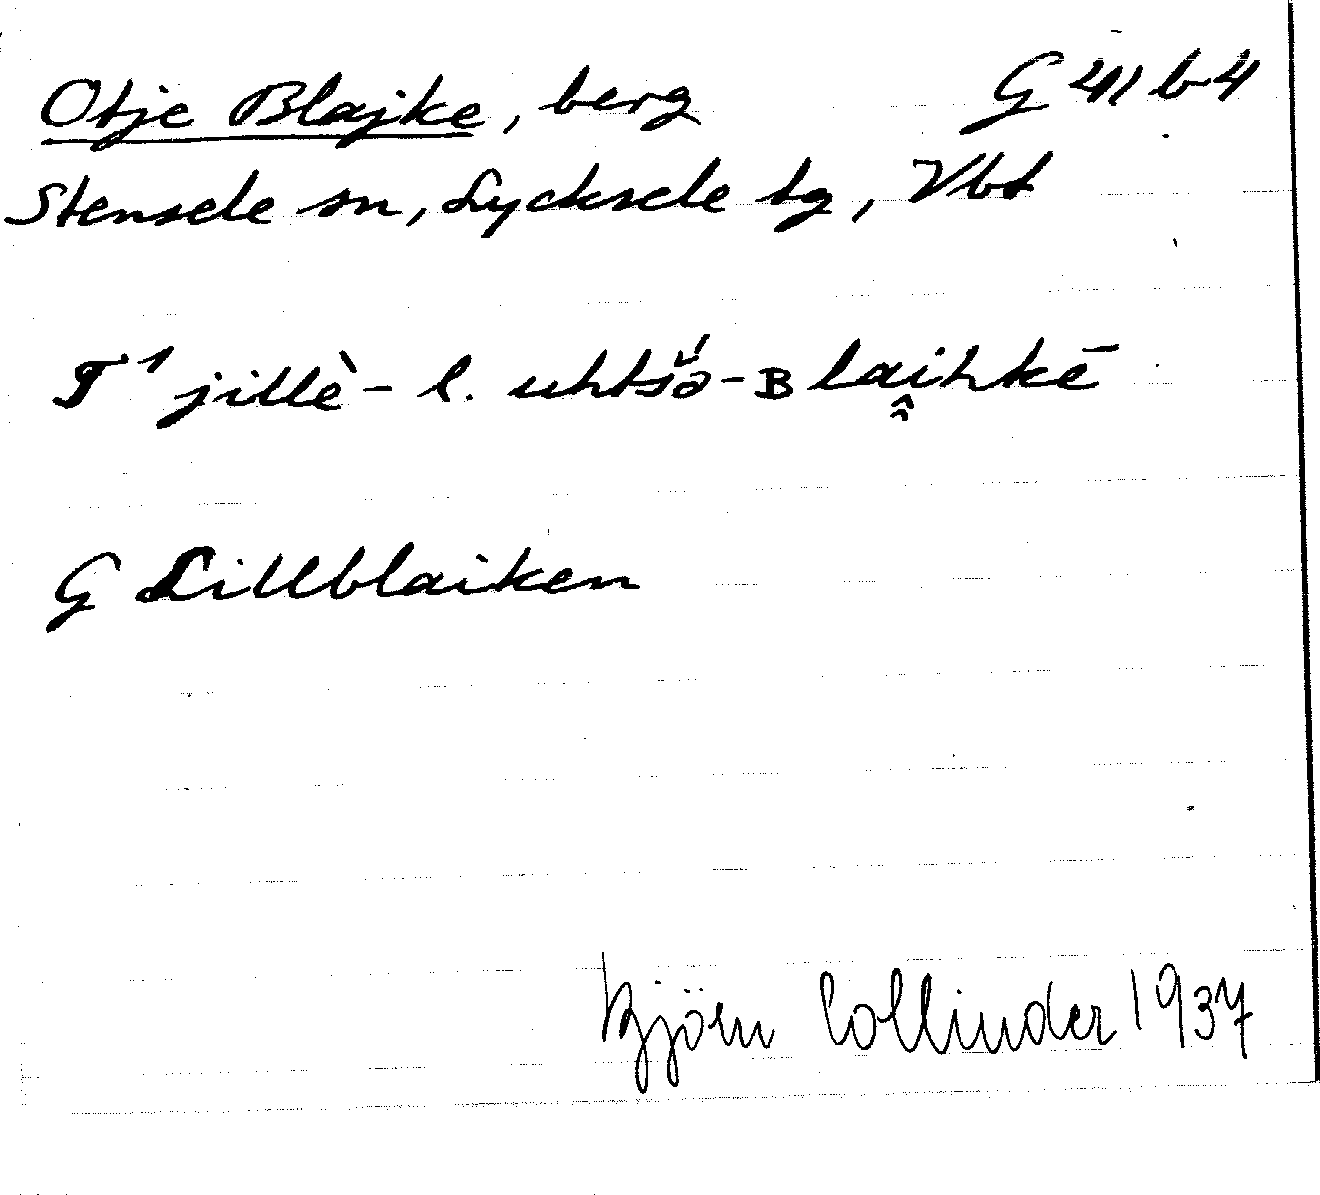 Otje Blajke, berg G 41 b 4
Stensele sn, Lycksele tg, Vbt
T¹ jillè- l. uhtsə̆́-ʙlai̭hkē
G Lillblaiken
Björn Collinder 1937